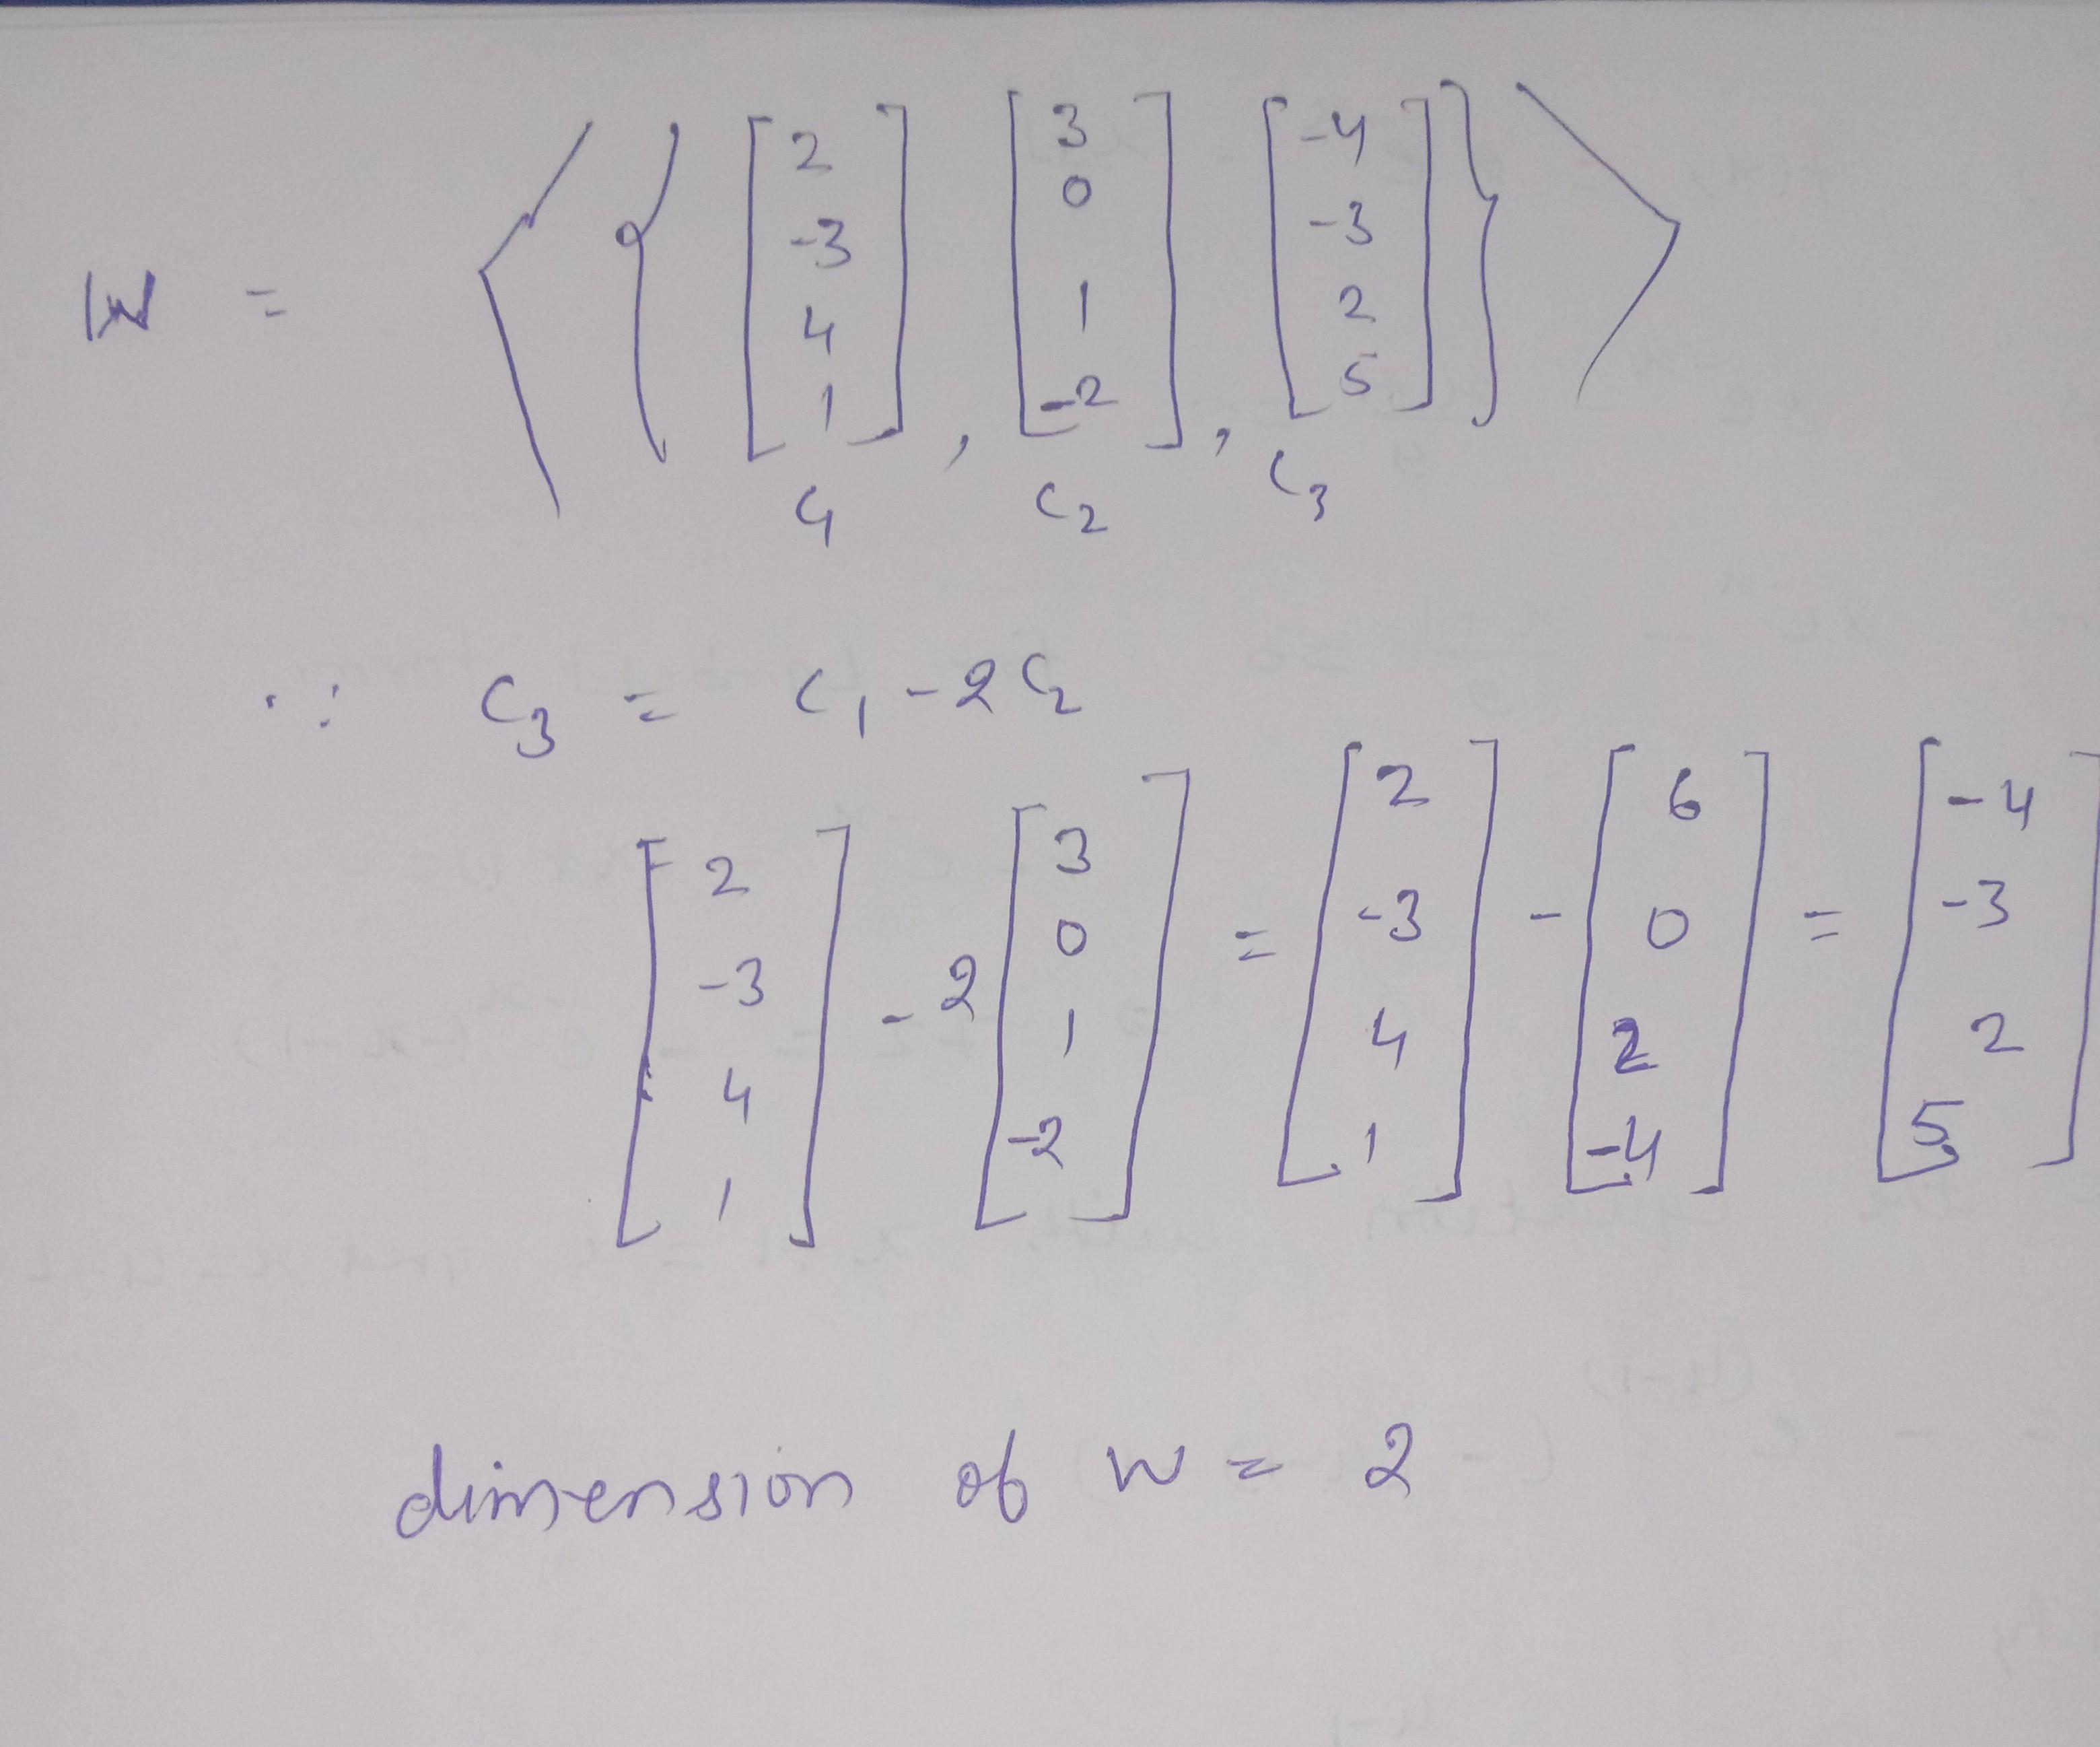 W = < { [2 -3 4 1] , [3 0 1 -2] , [-4 -3 2 5] } >
C1 C2 C3
∵ C3 = C1 - 2C2
[2 -3 4 1] - 2 [3 0 1 -2] = [2 -3 4 1] - [6 0 2 -4] = [-4 -3 2 5]
dimension of W = 2